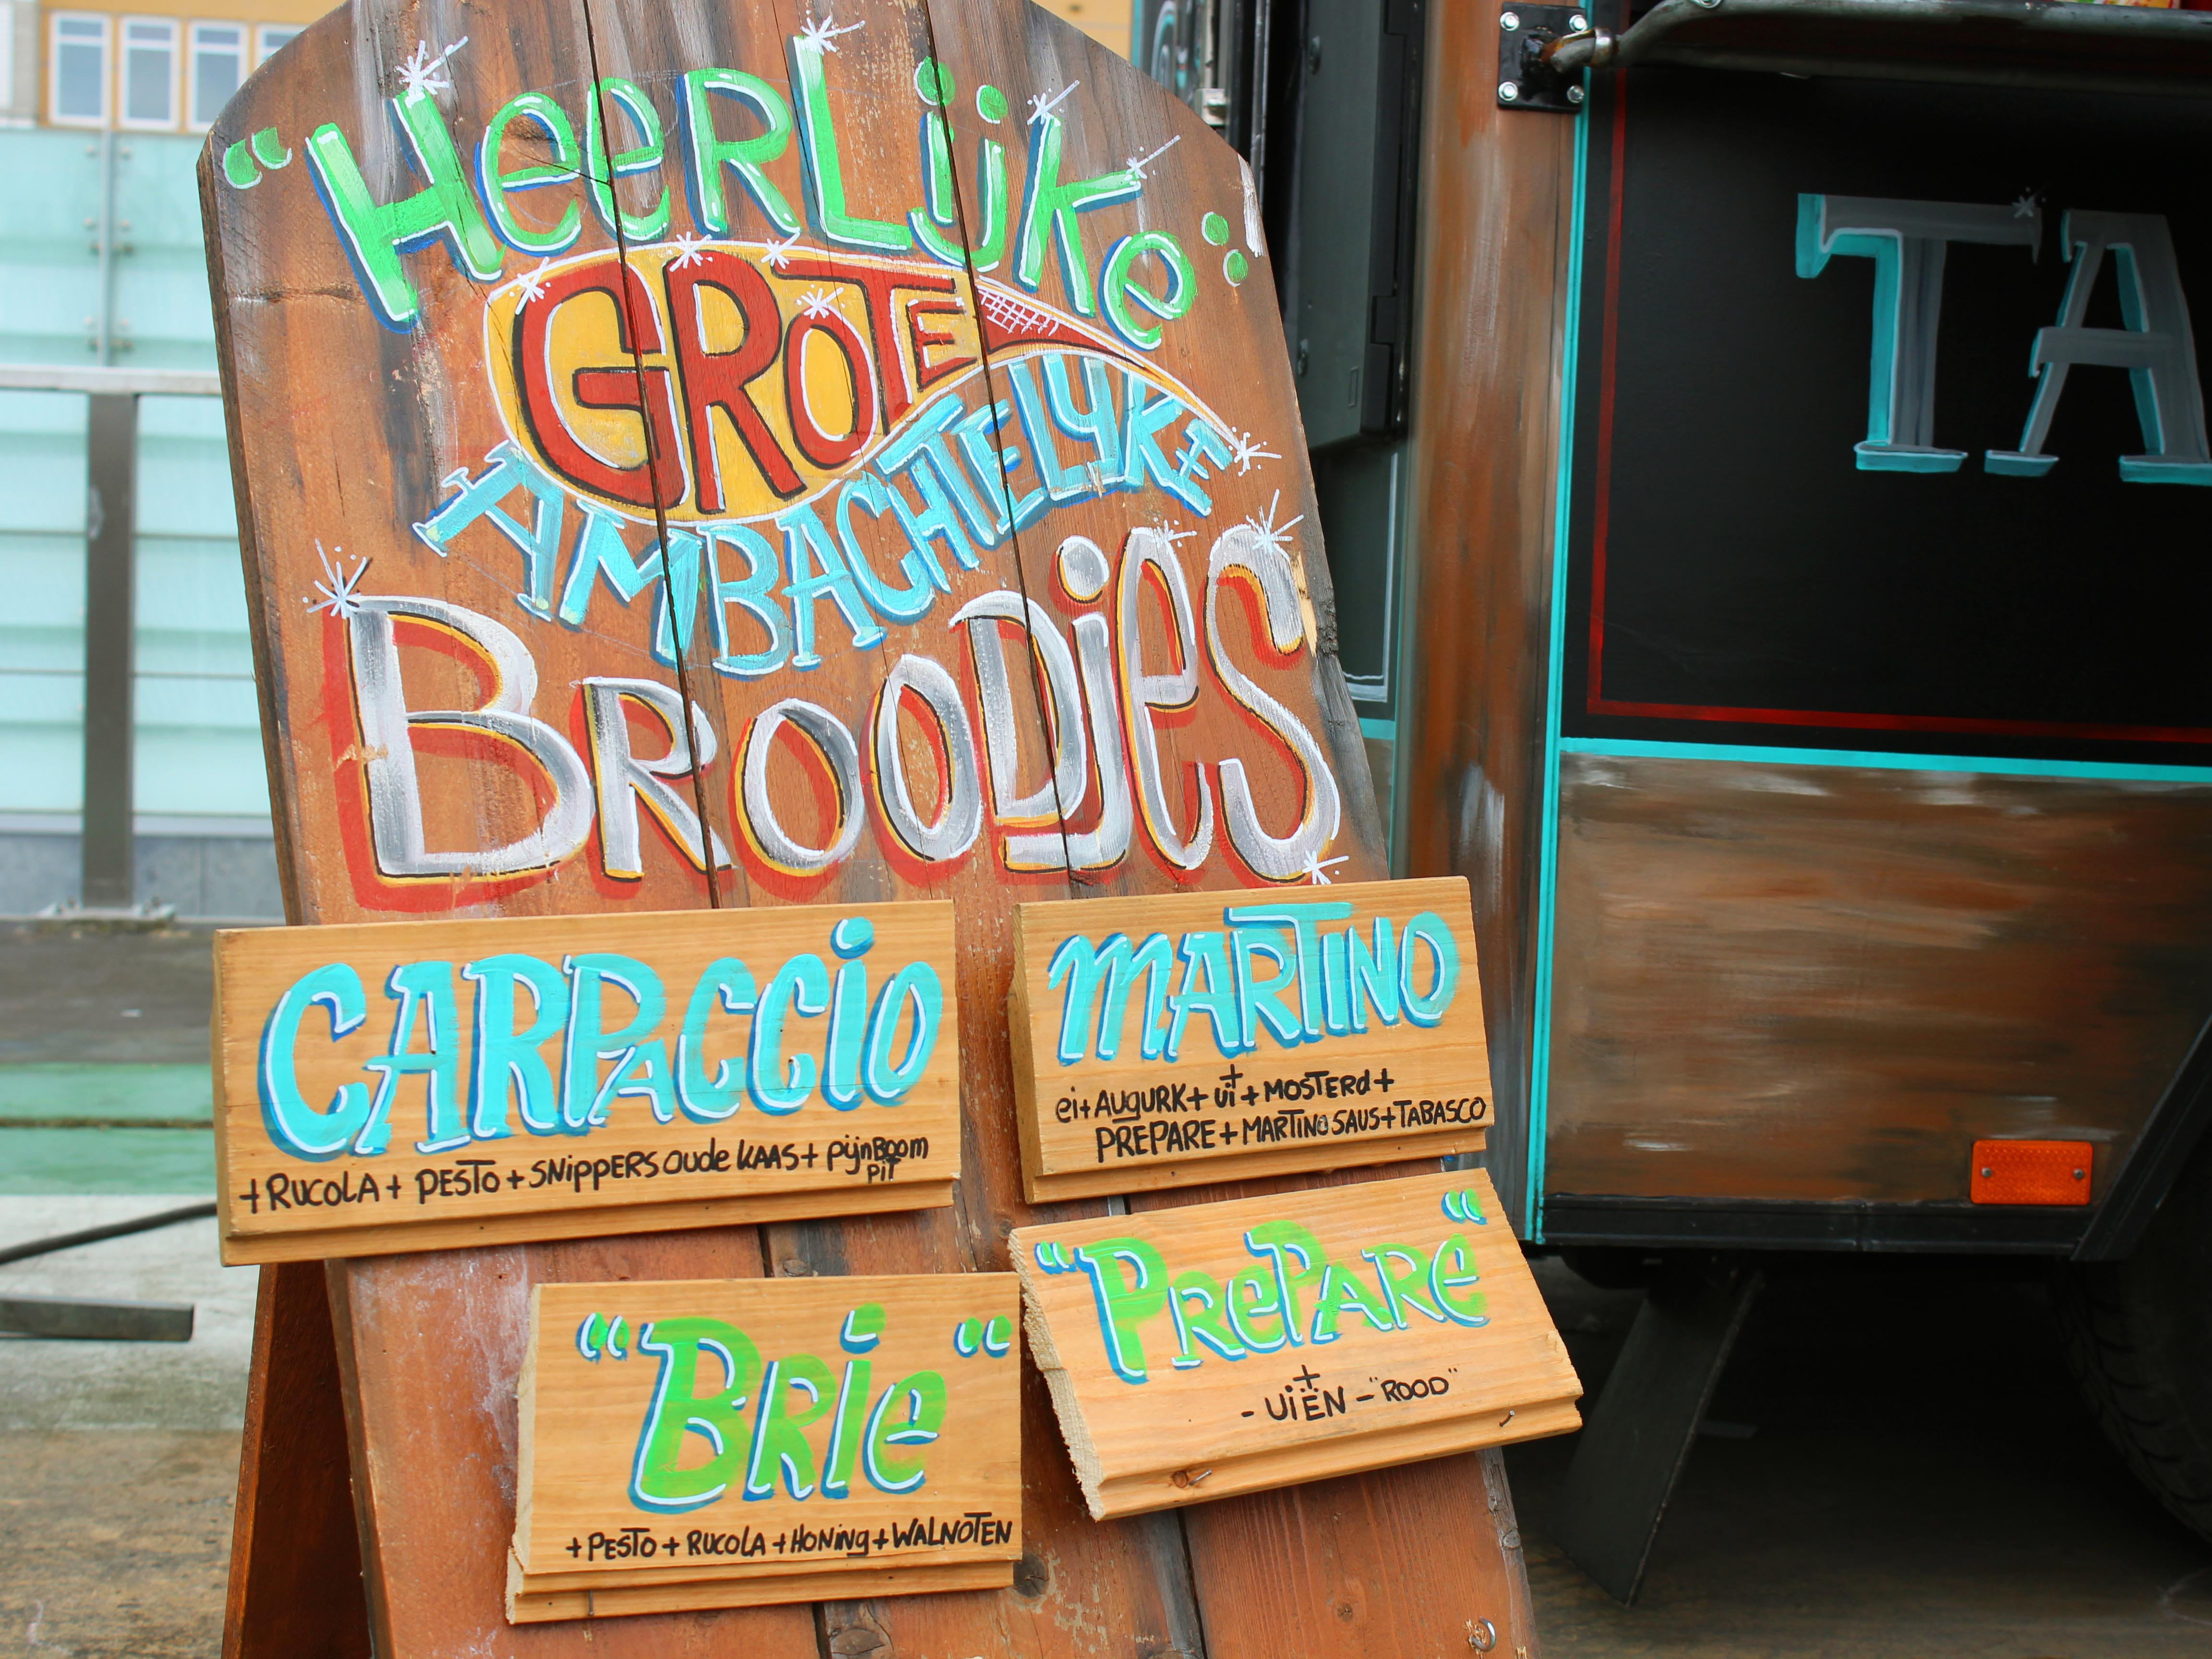 "HeerLijke"
GROTE
AMBACHTELYKE
BROODjES
CARPACCiO
+ RUCOLA + PESTO + SNiPPERS Oude KAAS + pijnBOOm
PiT
MARTINO
ei + AUgURK + ui + MOSTERd +
PREPARE + MARTINO SAUS + TABASCO
"PRePARe"
+
- UiËN - "ROOD"
"BRie"
+ PESTO + RUCOLA + HONiNg + WALNOTEN
TA